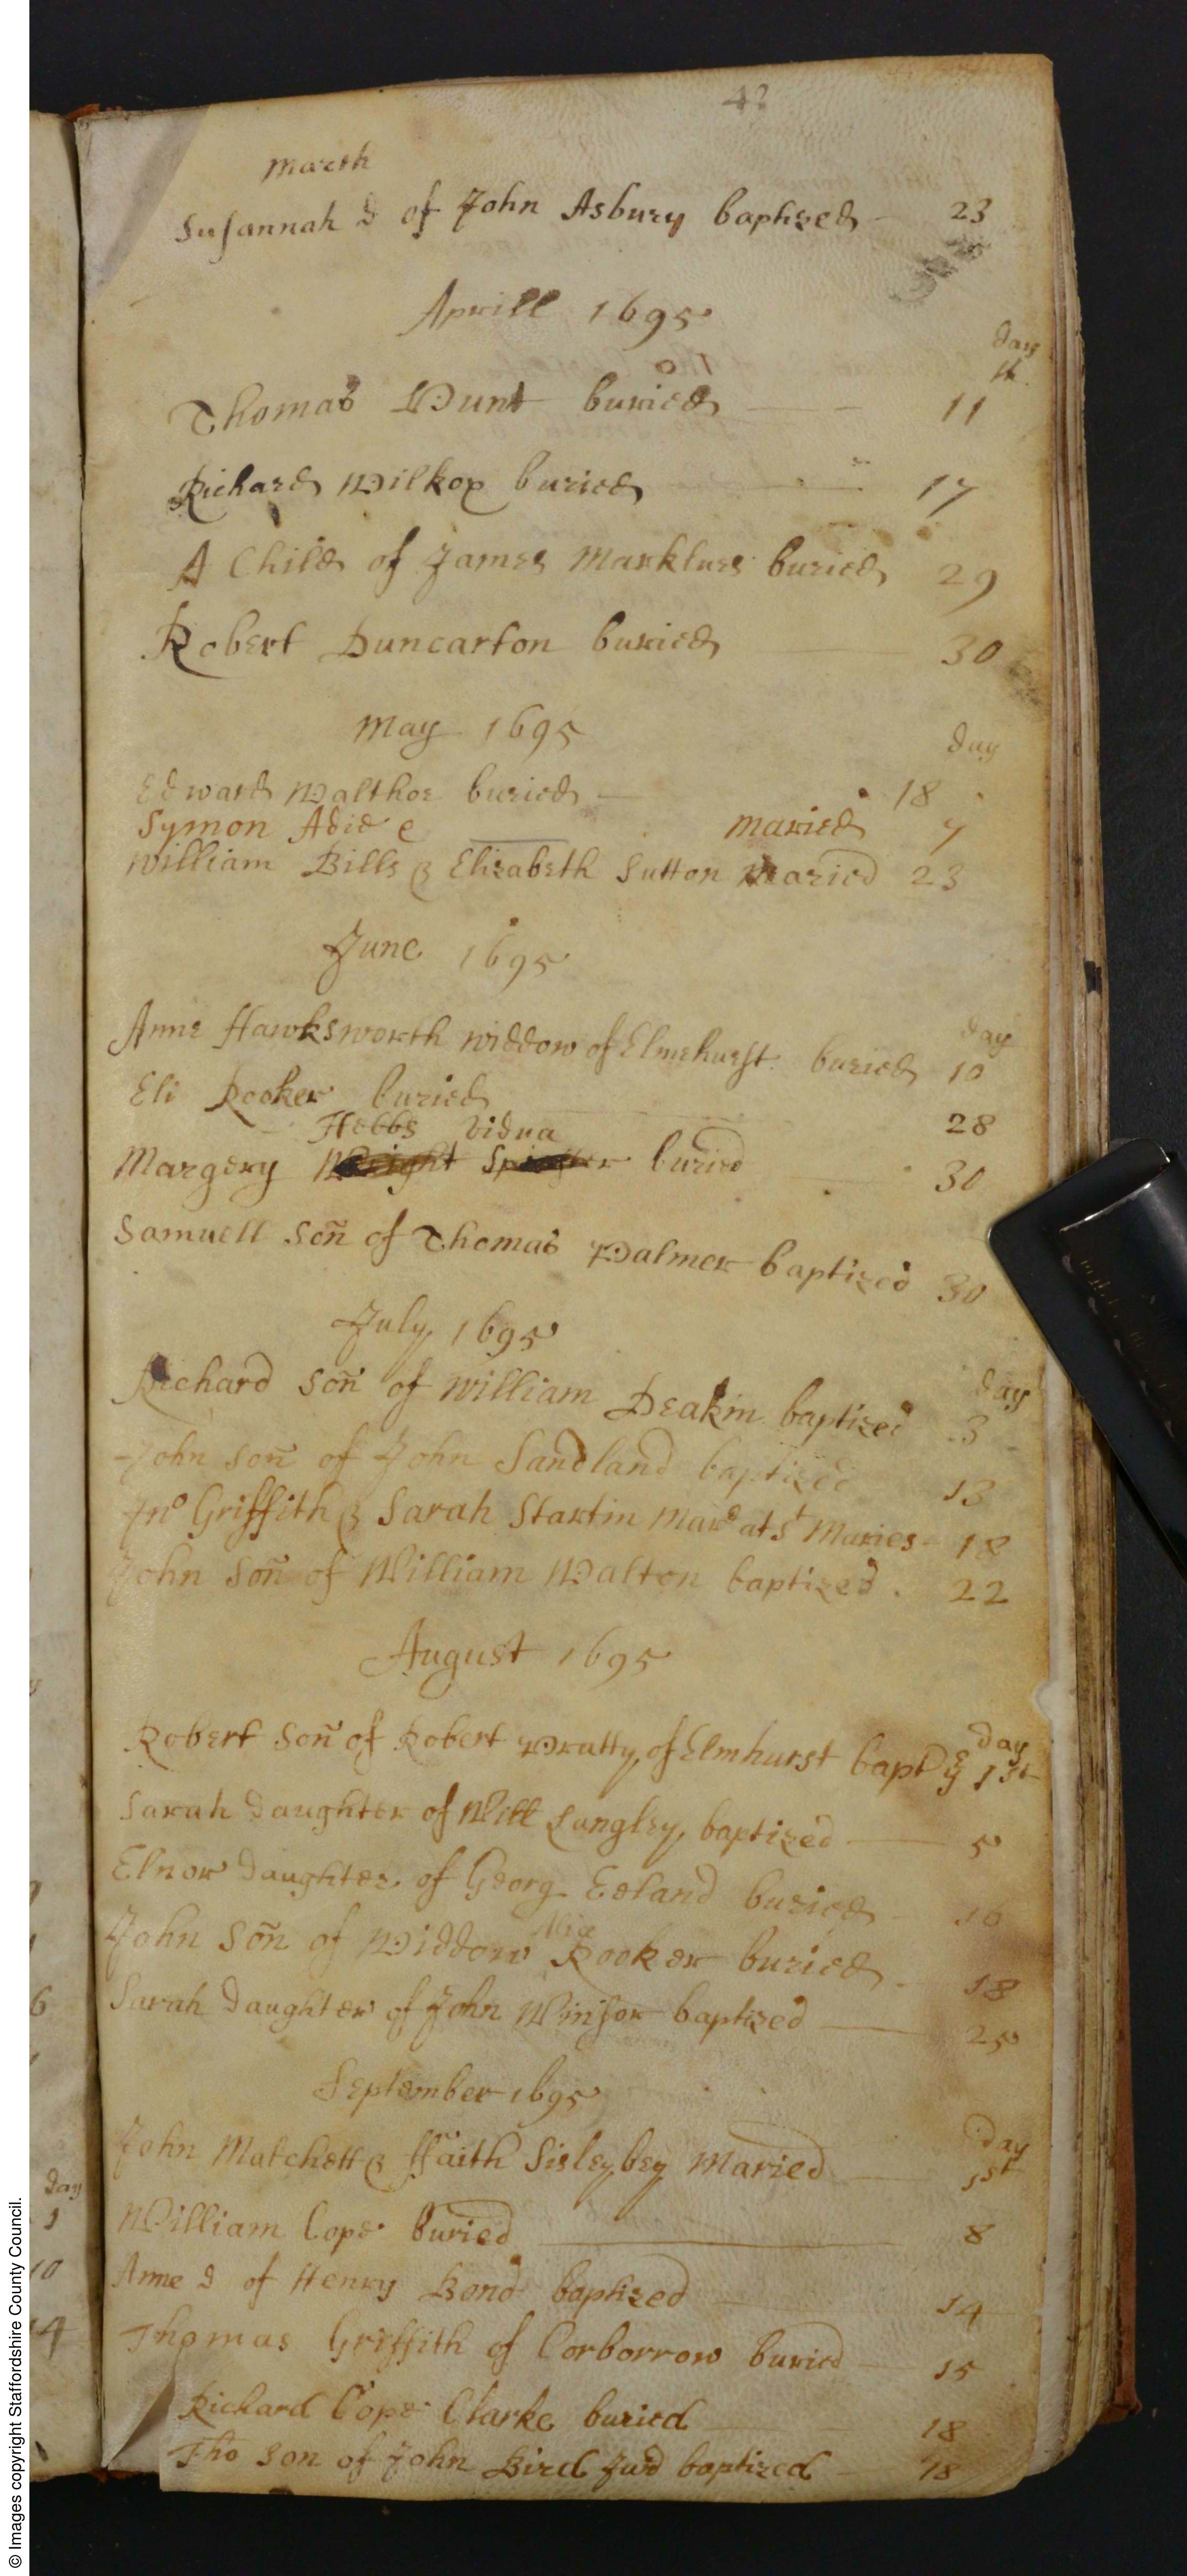 42
March
Susannah d of John Asbury baptized 23
Aprill 1695
day
Thomas Hunt buried 11
Richard Wilkox buried 17
A Child of James Marklues buried 29
Robert Duncarton buried 30
May 1695
day
Edward Walthor buried 18
Symon Adie & maried 7
William Bills & Elizabeth Sutton Maried 23
June 1695
day
Anne Hawksworth widdow of Elmehurst buried 10
Eli Rooker buried 28
Hebbs vidua
Margery Wright Spinster buried 30
Samuell son of Thomas Palmer baptized 30
July 1695
day
Richard son of William Deakin baptized 3
John son of John Sandland baptized 13
Jno Griffith & Sarah Startin Mard at St Maries 18
John son of William Walton baptized 22
August 1695
day
Robert son of Robert Pratty of Elmhurst bapt ye 1st
Sarah daughter of Will Langley baptized 5
Elnor daughter of Georg Eeland buried 16
John son of Widdow Rooker buried 18
Sarah daughter of John Winsor baptized 25
September 1695
day
John Matchett & ffaith Sisleybey Maried 1st
William Cope buried 8
Anne d of Henry Bond baptized 14
Thomas Griffith of Corborrow buried 15
Richard Cope Clarke buried 18
Tho son of John Bird Jund baptized 18
6
day
1
10
14
© Images copyright Staffordshire County Council.